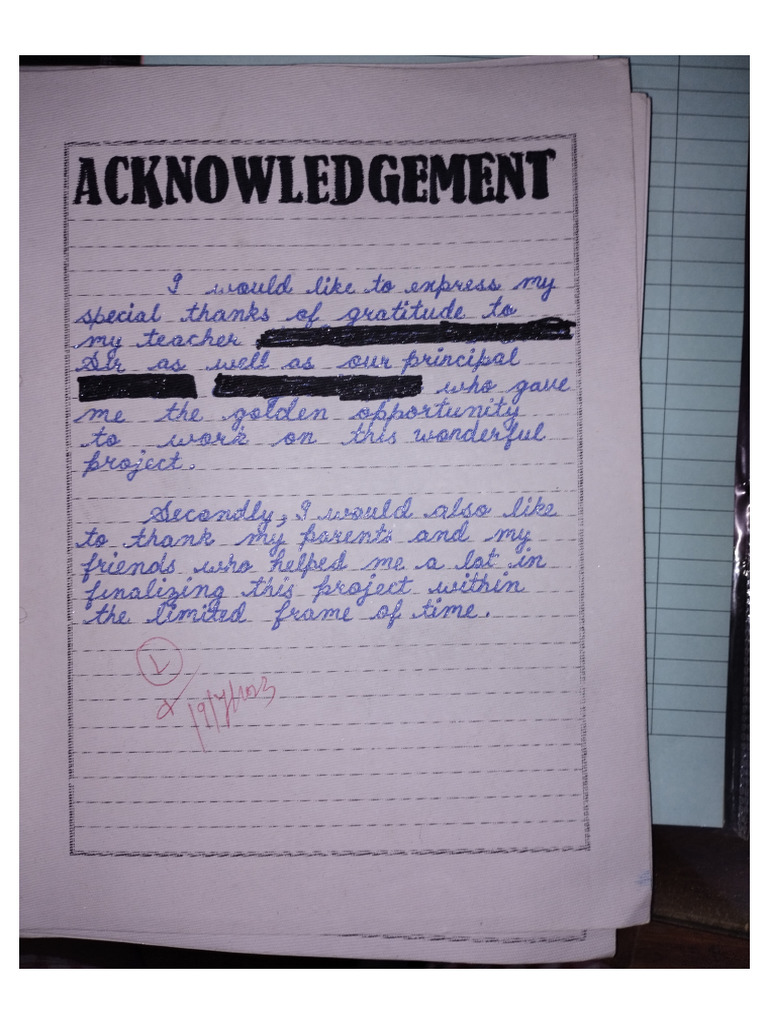 ACKNOWLEDGEMENT
I would like to express my
special thanks of gratitude to
my teacher
Sir as well as our principal
who gave
me the golden opportunity
to work on this wonderful
project.
Secondly, I would also like
to thank my parents and my
friends who helped me a lot in
finalizing this project within
the limited frame of time.
19/7/2023